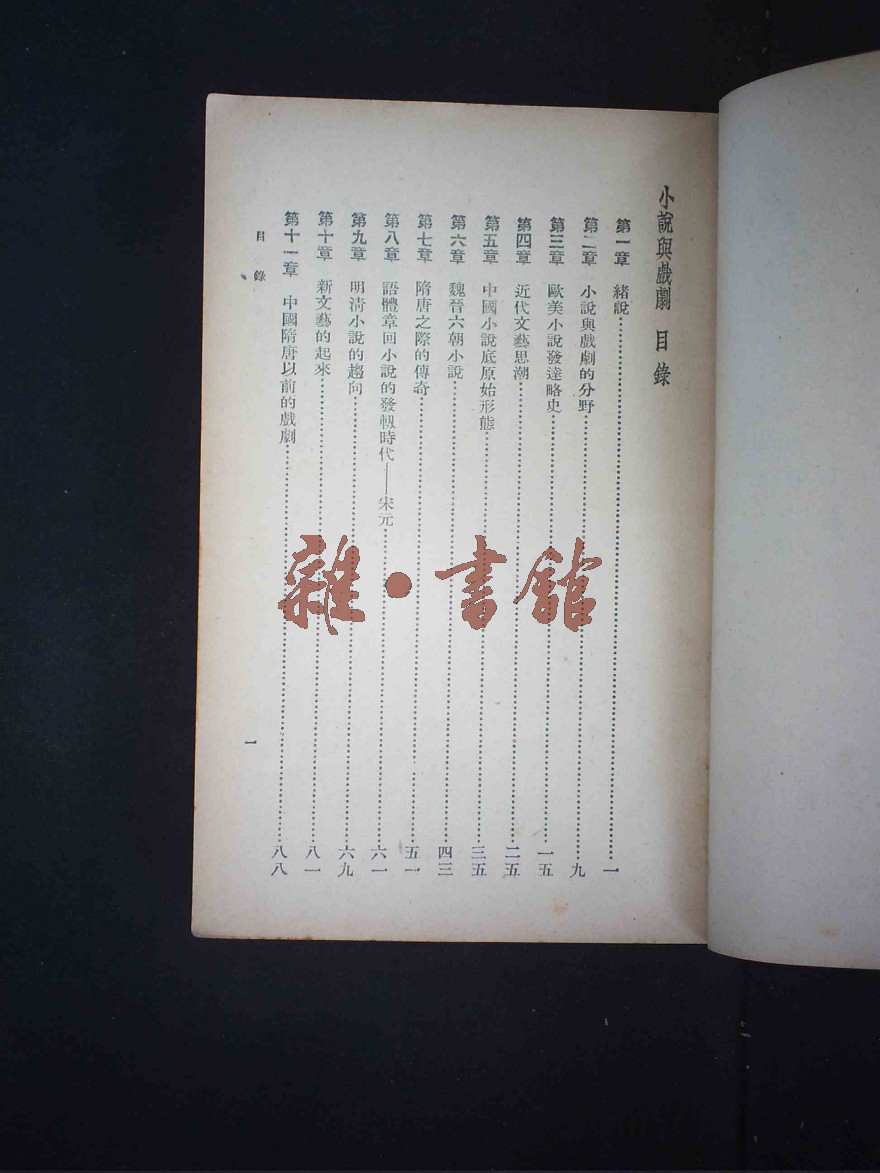 小說與戲劇 目錄
第一章 緒說……一
第二章 小說與戲劇的分野……九
第三章 歐美小說發達略史……一五
第四章 近代文藝思潮……二五
第五章 中國小說底原始形態……三五
第六章 魏晉六朝小說……四三
第七章 隋唐之際的傳奇……五一
第八章 語體章回小說的發軔時代——宋元……六一
第九章 明清小說的趨向……六九
第十章 新文藝的起來……八一
第十一章 中國隋唐以前的戲劇……八八
目錄
一
雜·書館